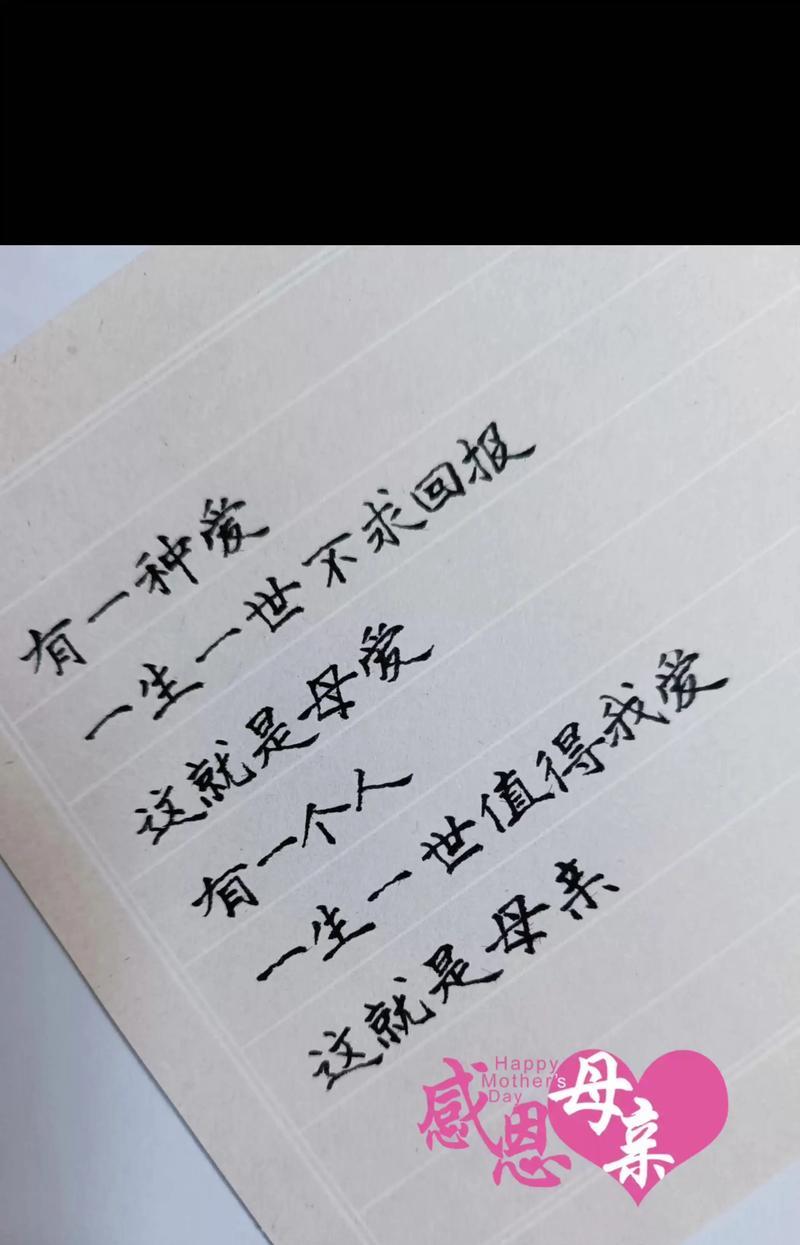 有一种爱
一生一世不求回报
这就是母爱
有一个人
一生一世值得我爱
这就是母亲
Happy
Mother's
Day
感恩母亲